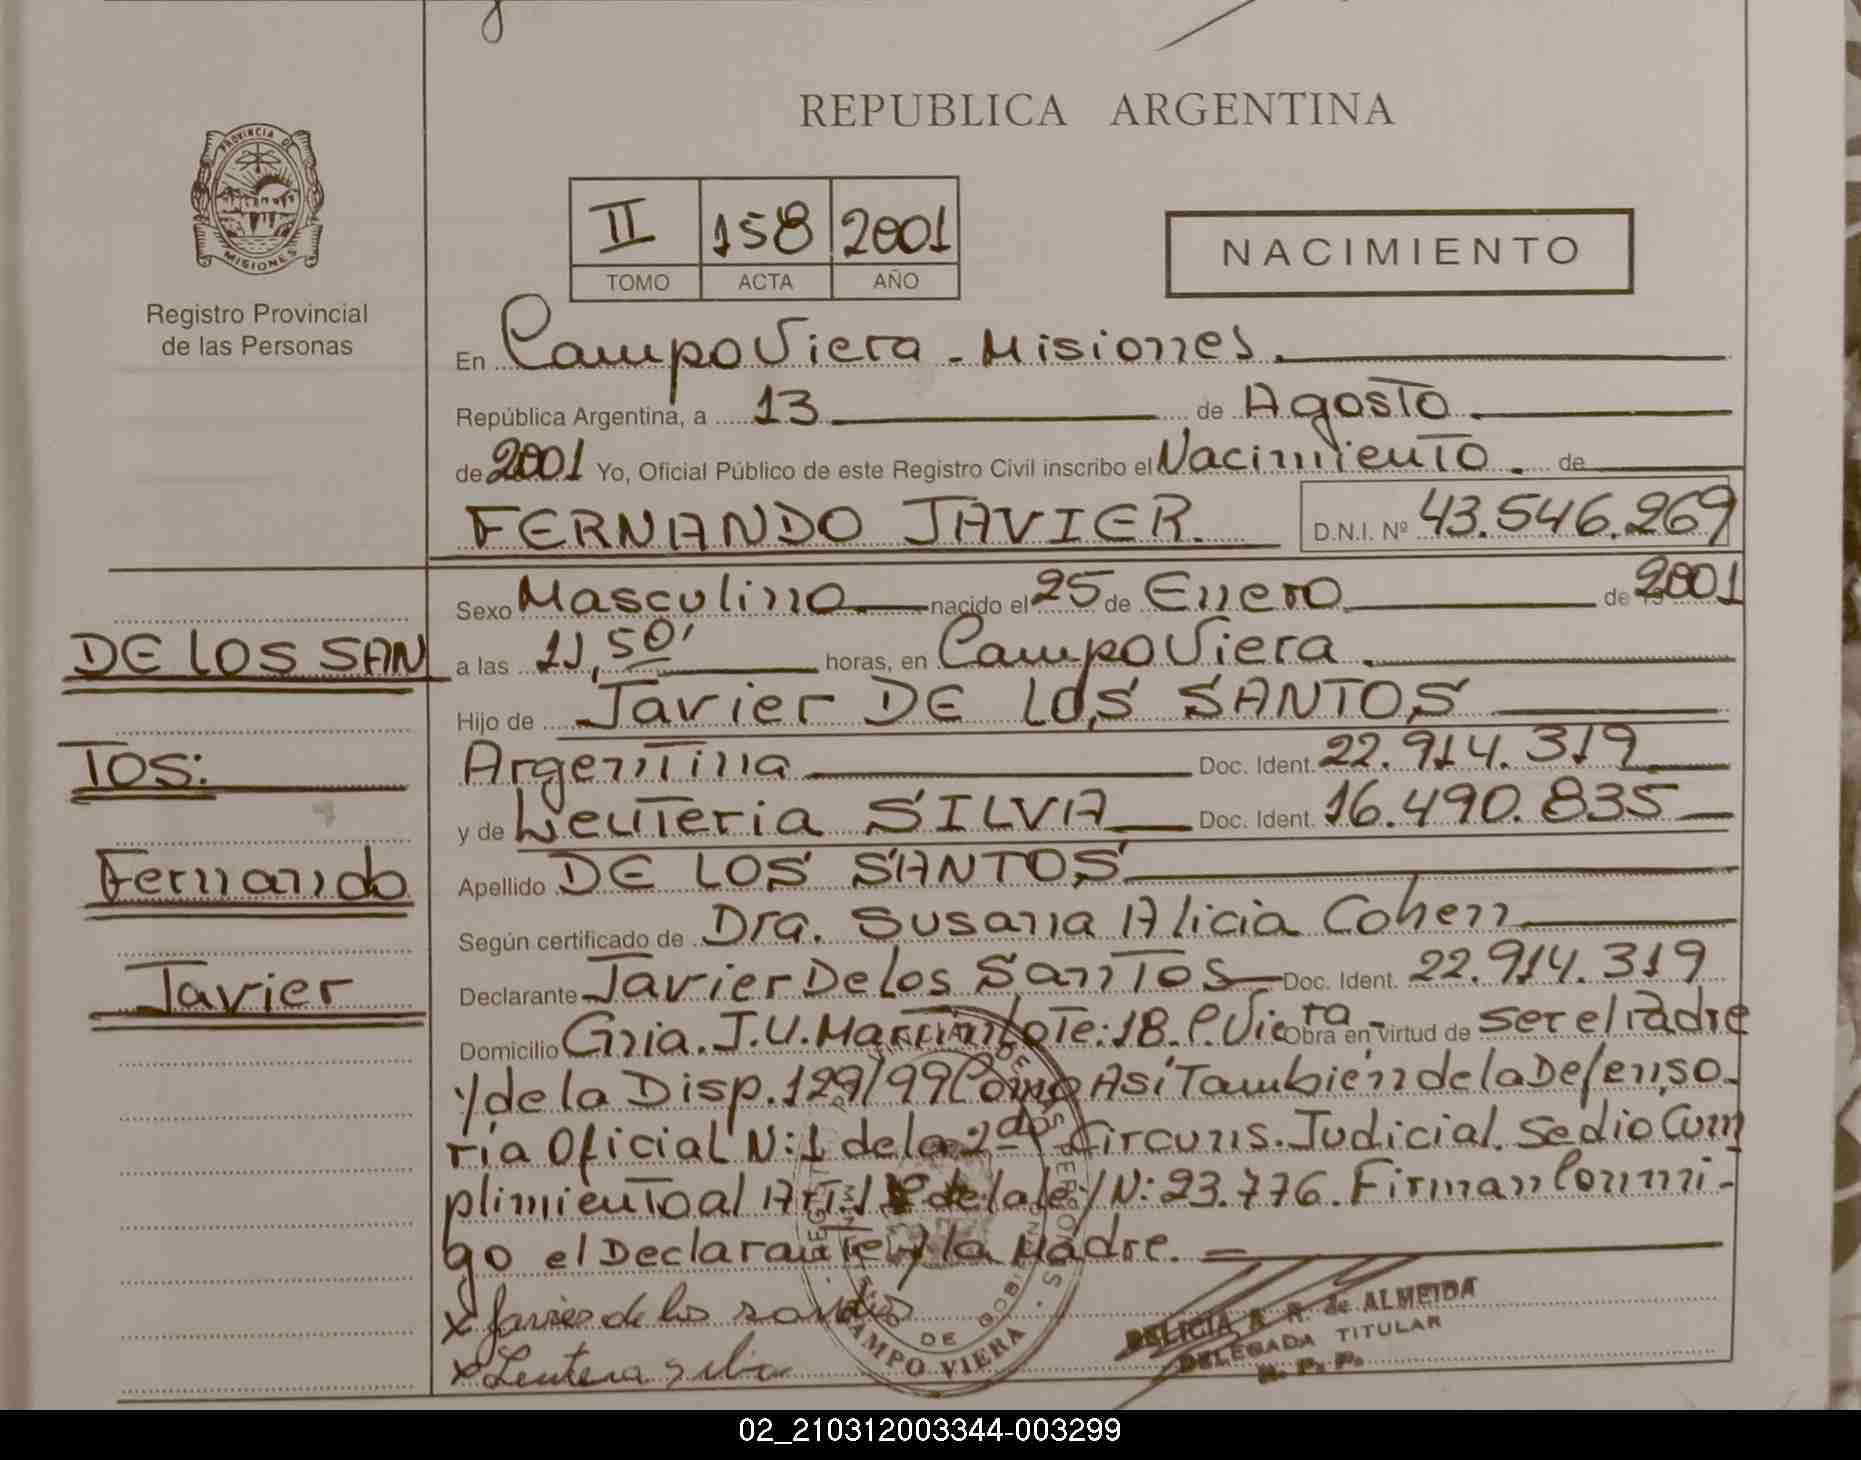 REPUBLICA ARGENTINA
PROVINCIA DE
MISIONES
Registro Provincial
de las Personas
II 158 2001
TOMO ACTA AÑO
NACIMIENTO
En Campo Viera - Misiones.
República Argentina, a 13 de Agosto
de 2001 Yo, Oficial Público de este Registro Civil inscribo el Nacimiento. de
FERNANDO JAVIER. D.N.I. Nº 43.546.269
Sexo Masculino nacido el 25 de Enero de 2001
DE LOS SAN
a las 11,50' horas, en Campo Viera.
Hijo de Javier DE LOS SANTOS
TOS:
Argentina Doc. Ident. 22.914.319
y de Leuteria SILVA Doc. Ident. 16.490.835
Fernando
Apellido DE LOS SANTOS
Según certificado de Dra. Susana Alicia Cohen
Javier
Declarante Javier De los Santos Doc. Ident. 22.914.319
Domicilio Cnia. J.U. Martin Lote: 18. C. Viera - Obra en virtud de ser el Padre
y de la Disp. 129/99 Como Asi Tambien de la Defenso-
ria Oficial N: 1 de la 2da Circuns. Judicial. Se dio Cum
plimiento al Art. 1º de la ley N: 23.776. Firman Conmi-
go el Declarante y la Madre.
x Javier de los santos
x Leuteria silva
CAMPO VIERA
DELICIA A. R. de ALMEIDA
DELEGADA TITULAR
R. P. P.
02_210312003344-003299